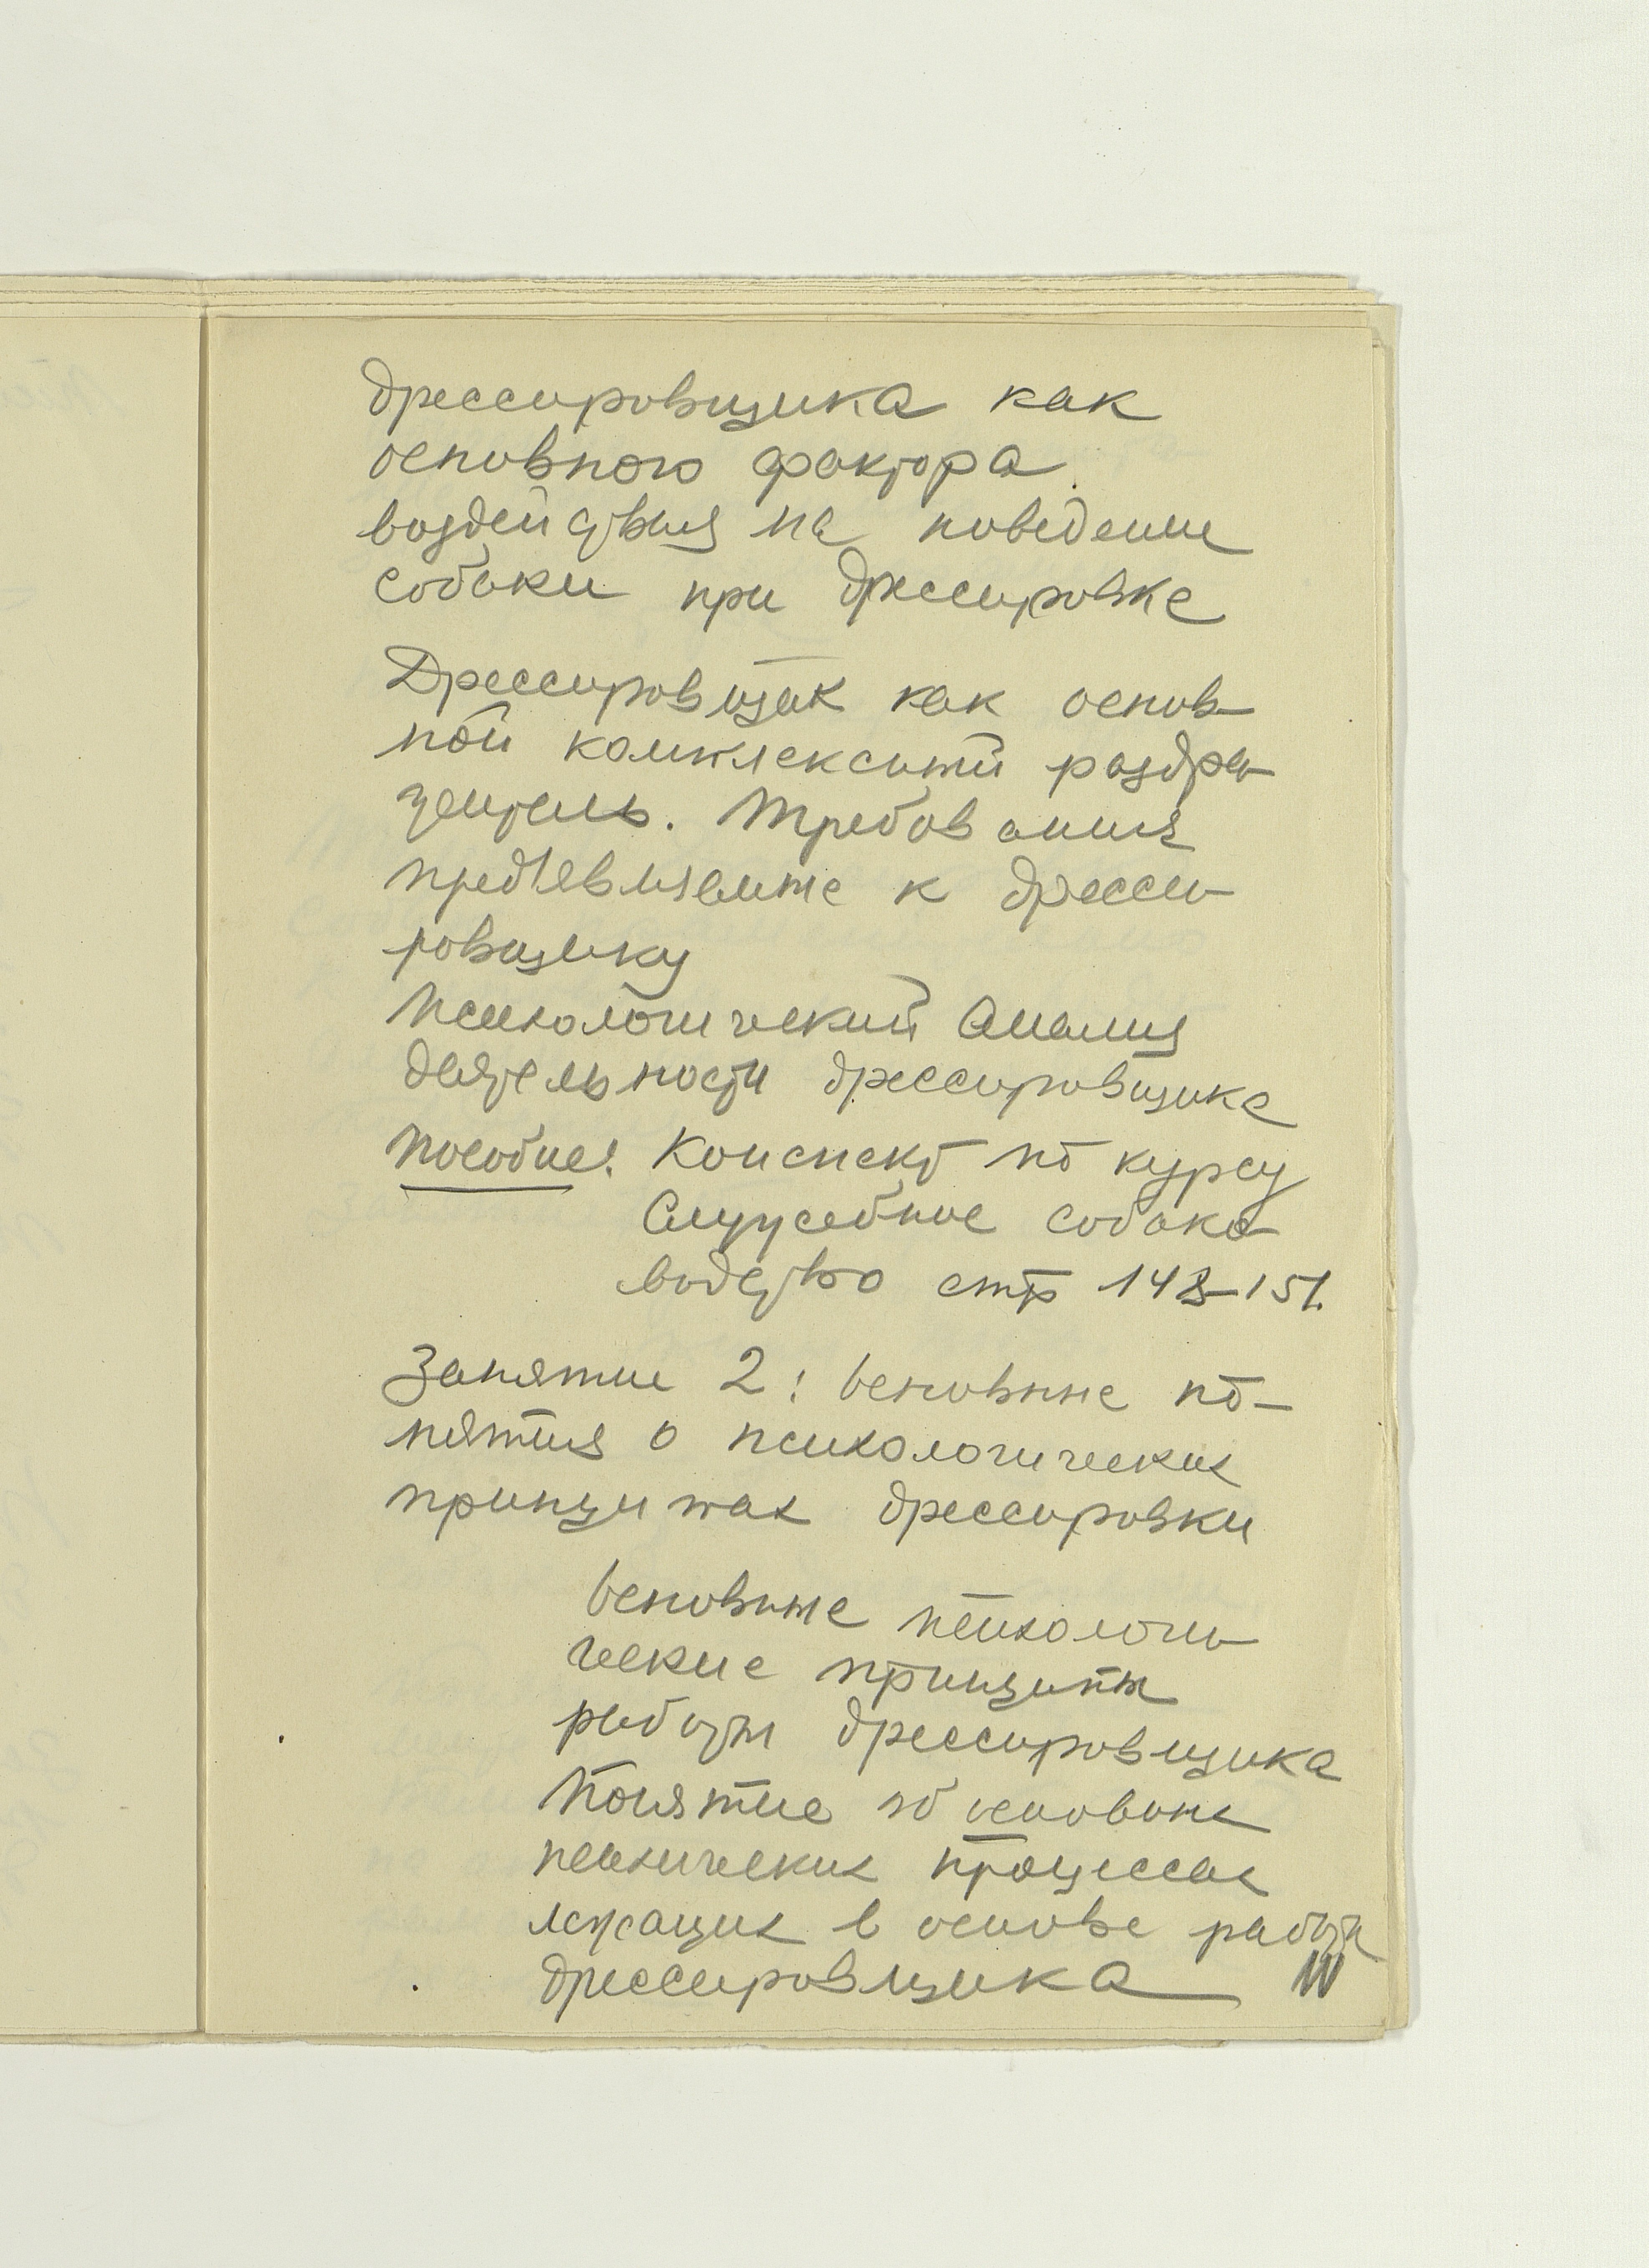 дрессировщика как
основного фактора
воздействия на поведение
собаки при дрессировке
Дрессировщик как основ-
ной комплексный раздра-
житель. Требования
предъявляемые к дресси-
ровщику
Психологический анализ
деятельности дрессировщика
Пособие: Конспект по курсу
Служебное собако-
водство стр 148-151.
Занятие 2: Основные по-
нятия о психологических
принципах дрессировки
Основные психологи-
ческие принципы
работы дрессировщика
Понятие об основных
психических процессах
лежащих в основе работы
дрессировщика